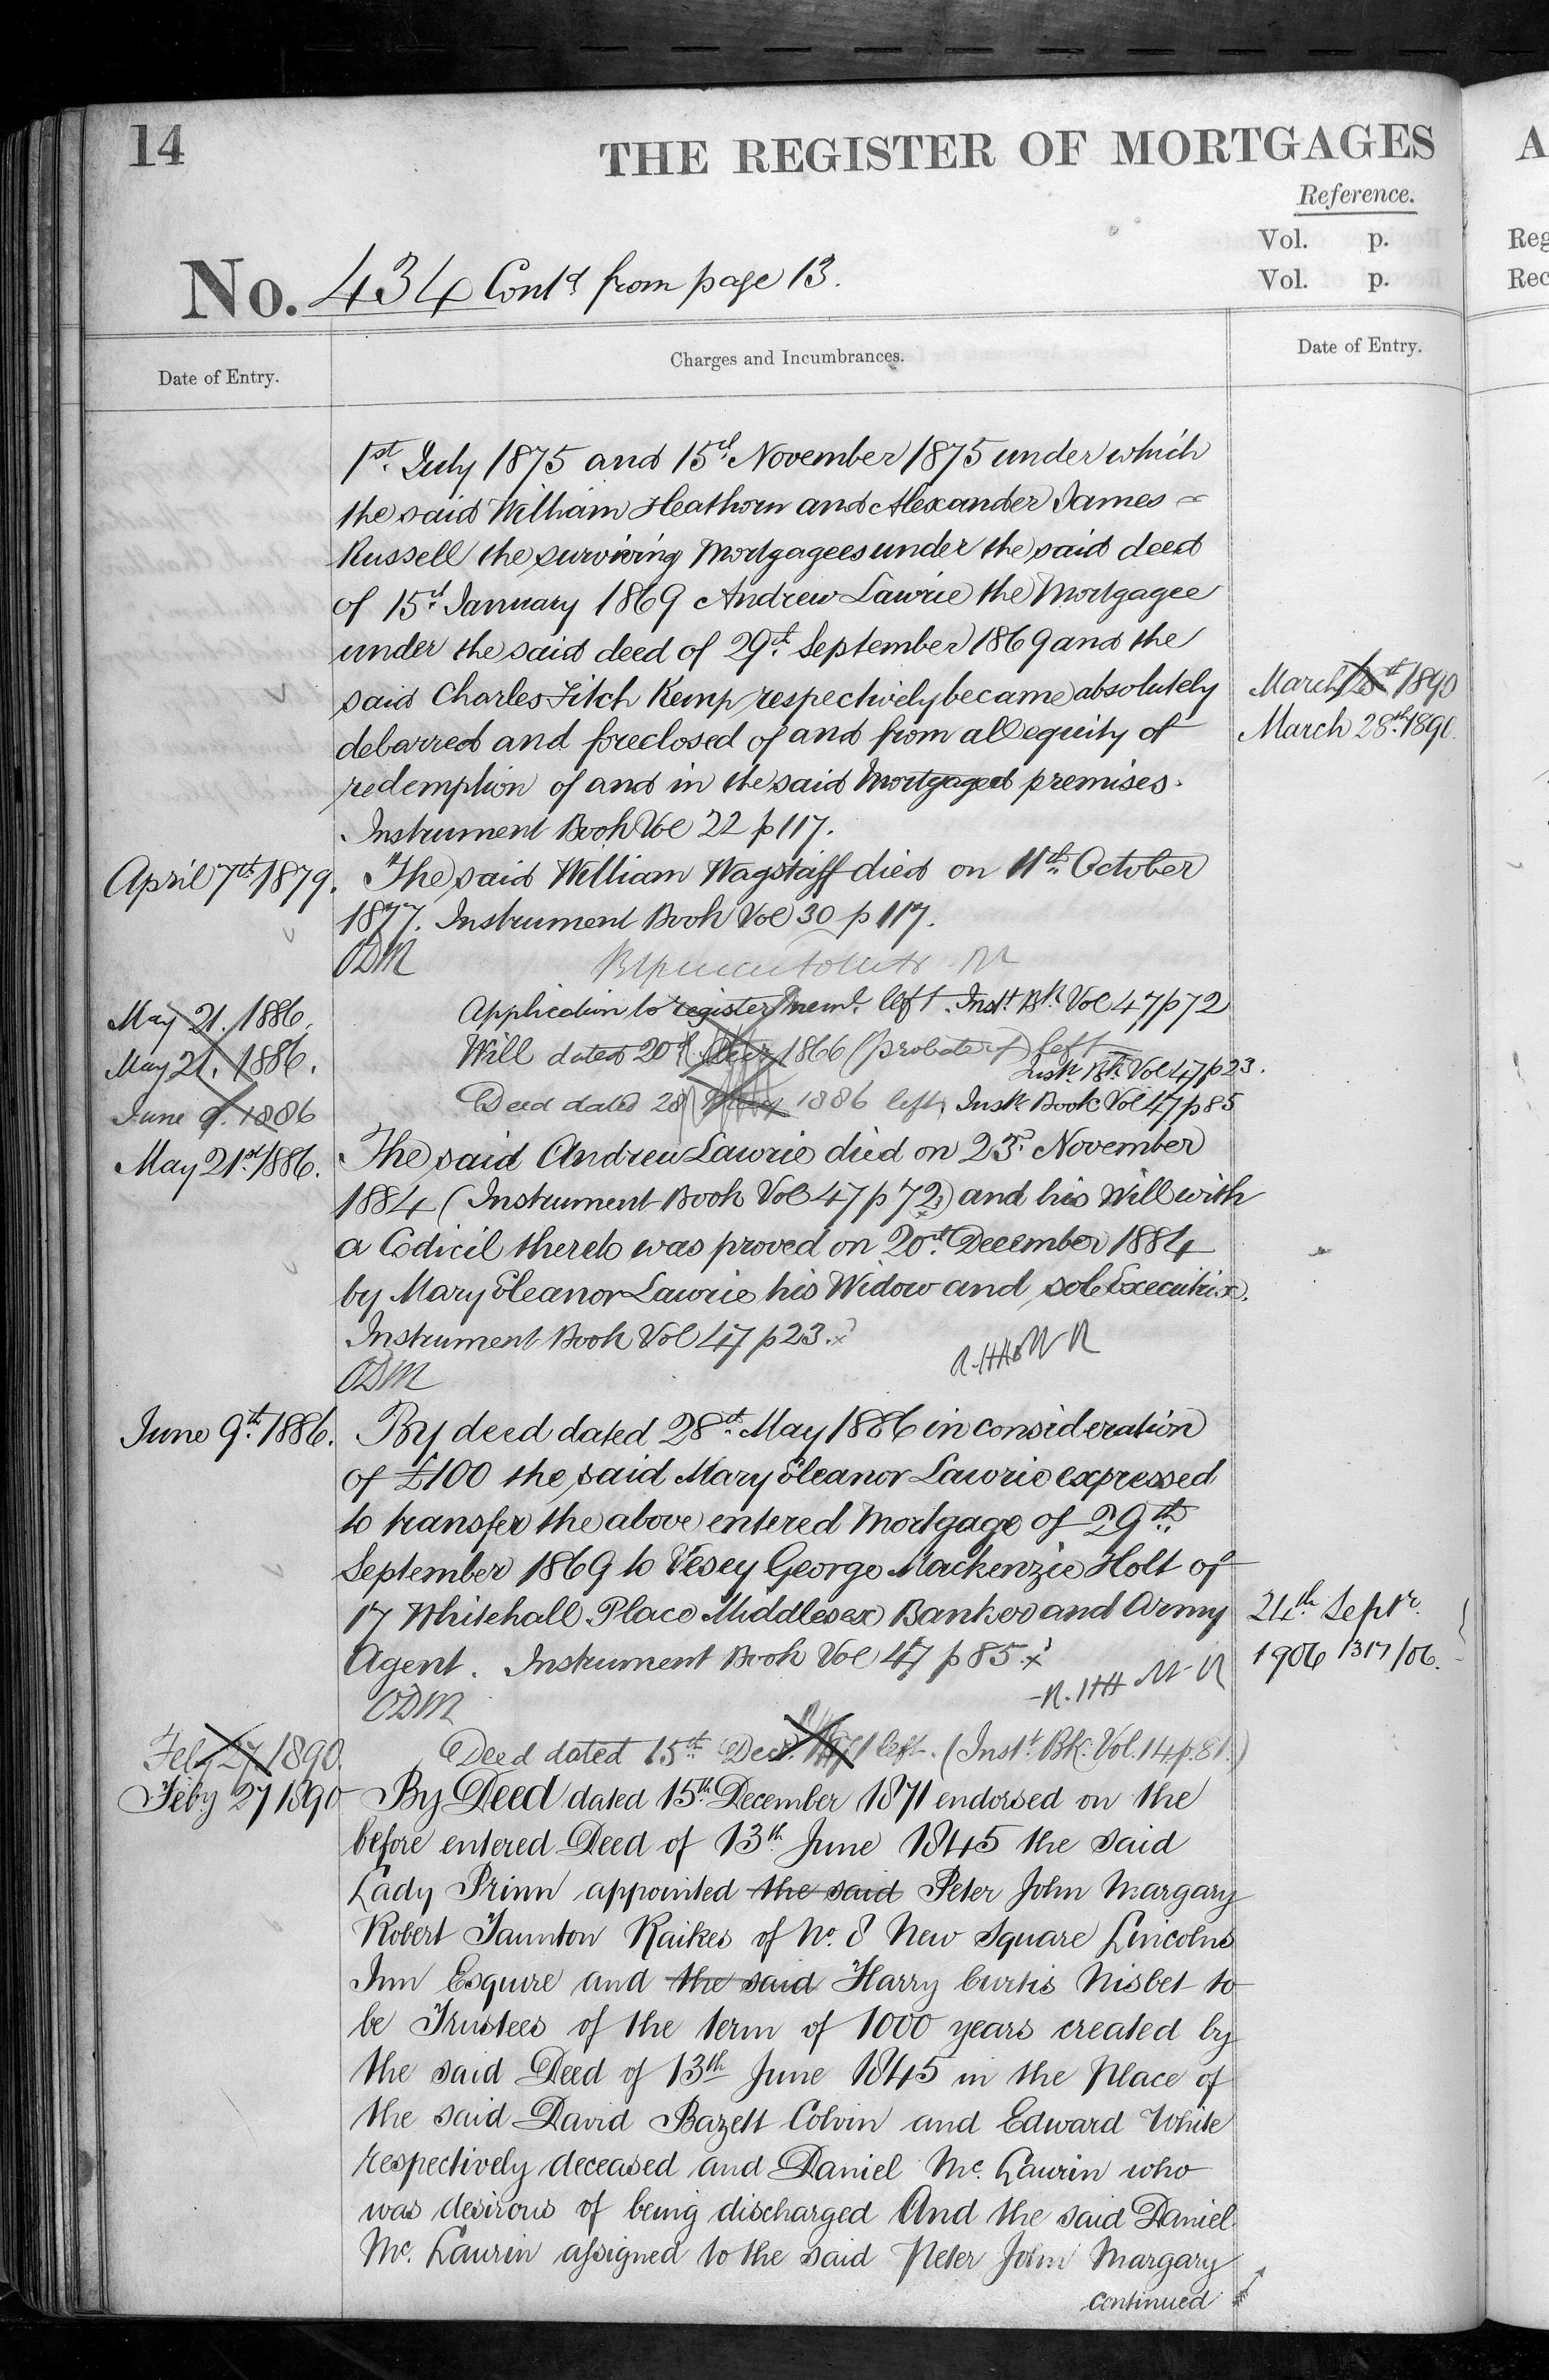 14
THE REGISTER OF MORTGAGES
Reference.
Vol. p.
Vol. p.
No. 434 Contd from page 13.
Date of Entry.
Charges and Incumbrances.
Date of Entry.
1st. July 1875 and 15th November 1875 under which
the said William Heathorn and Alexander James
Russell the surviving Mortgagees under the said deed
of 15th January 1869 Andrew Lawrie the Mortgagee
under the said deed of 29th September 1869 and the
said Charles Fitch Kemp respectively became absolutely
debarred and foreclosed of and from all equity of
redemption of and in the said Mortgaged premises.
Instrument Book Vol 22 p 117.
April 7th 1879. The said William Wagstaff died on 11th October
1877. Instrument Book Vol 30 p 117.
ODM
May 21. 1886. Application to register left. Inst. Bk. Vol 47 p 72
May 21. 1886. Will dated 20 1866 (probate) left
Inst. Bk. Vol 47 p 23.
June 9. 1886 Deed dated 28 May 1886 left, Inst. Book Vol 47 p 85
May 21st 1886. The said Andrew Lawrie died on 23rd November
1884 (Instrument Book Vol 47 p 72) and his Will with
a Codicil thereto was proved on 20th December 1884
by Mary Eleanor Lawrie his Widow and sole Executrix.
Instrument Book Vol 47 p 23.
ODM
June 9th 1886. By deed dated 28th May 1886 in consideration
of £100 the said Mary Eleanor Lawrie expressed
to transfer the above entered Mortgage of 29th
September 1869 to Vesey George Mackenzie Holt of
17 Whitehall Place Middlesex Banker and Army
Agent. Instrument Book Vol 47 p 85
ODM
Feby 27 1890. Deed dated 15th Decr. 1871 left. (Inst. Bk. Vol. 14 p. 81.)
Feby 27 1890 By Deed dated 15th December 1871 endorsed on the
before entered Deed of 13th June 1845 the said
Lady Prinn appointed the said Peter John Margary
Robert Taunton Raikes of No. 8 New Square Lincolns
Inn Esquire and the said Harry Curtis Nisbet to
be Trustees of the term of 1000 years created by
the said Deed of 13th June 1845 in the Place of
the said David Bazett Colvin and Edward White
respectively deceased and Daniel Mc. Laurin who
was desirous of being discharged And the said Daniel
Mc. Laurin assigned to the said Peter John Margary
continued
March 1890
March 28th 1890.
24th Septr.
1906 1317/06.
A
Reg
Rec